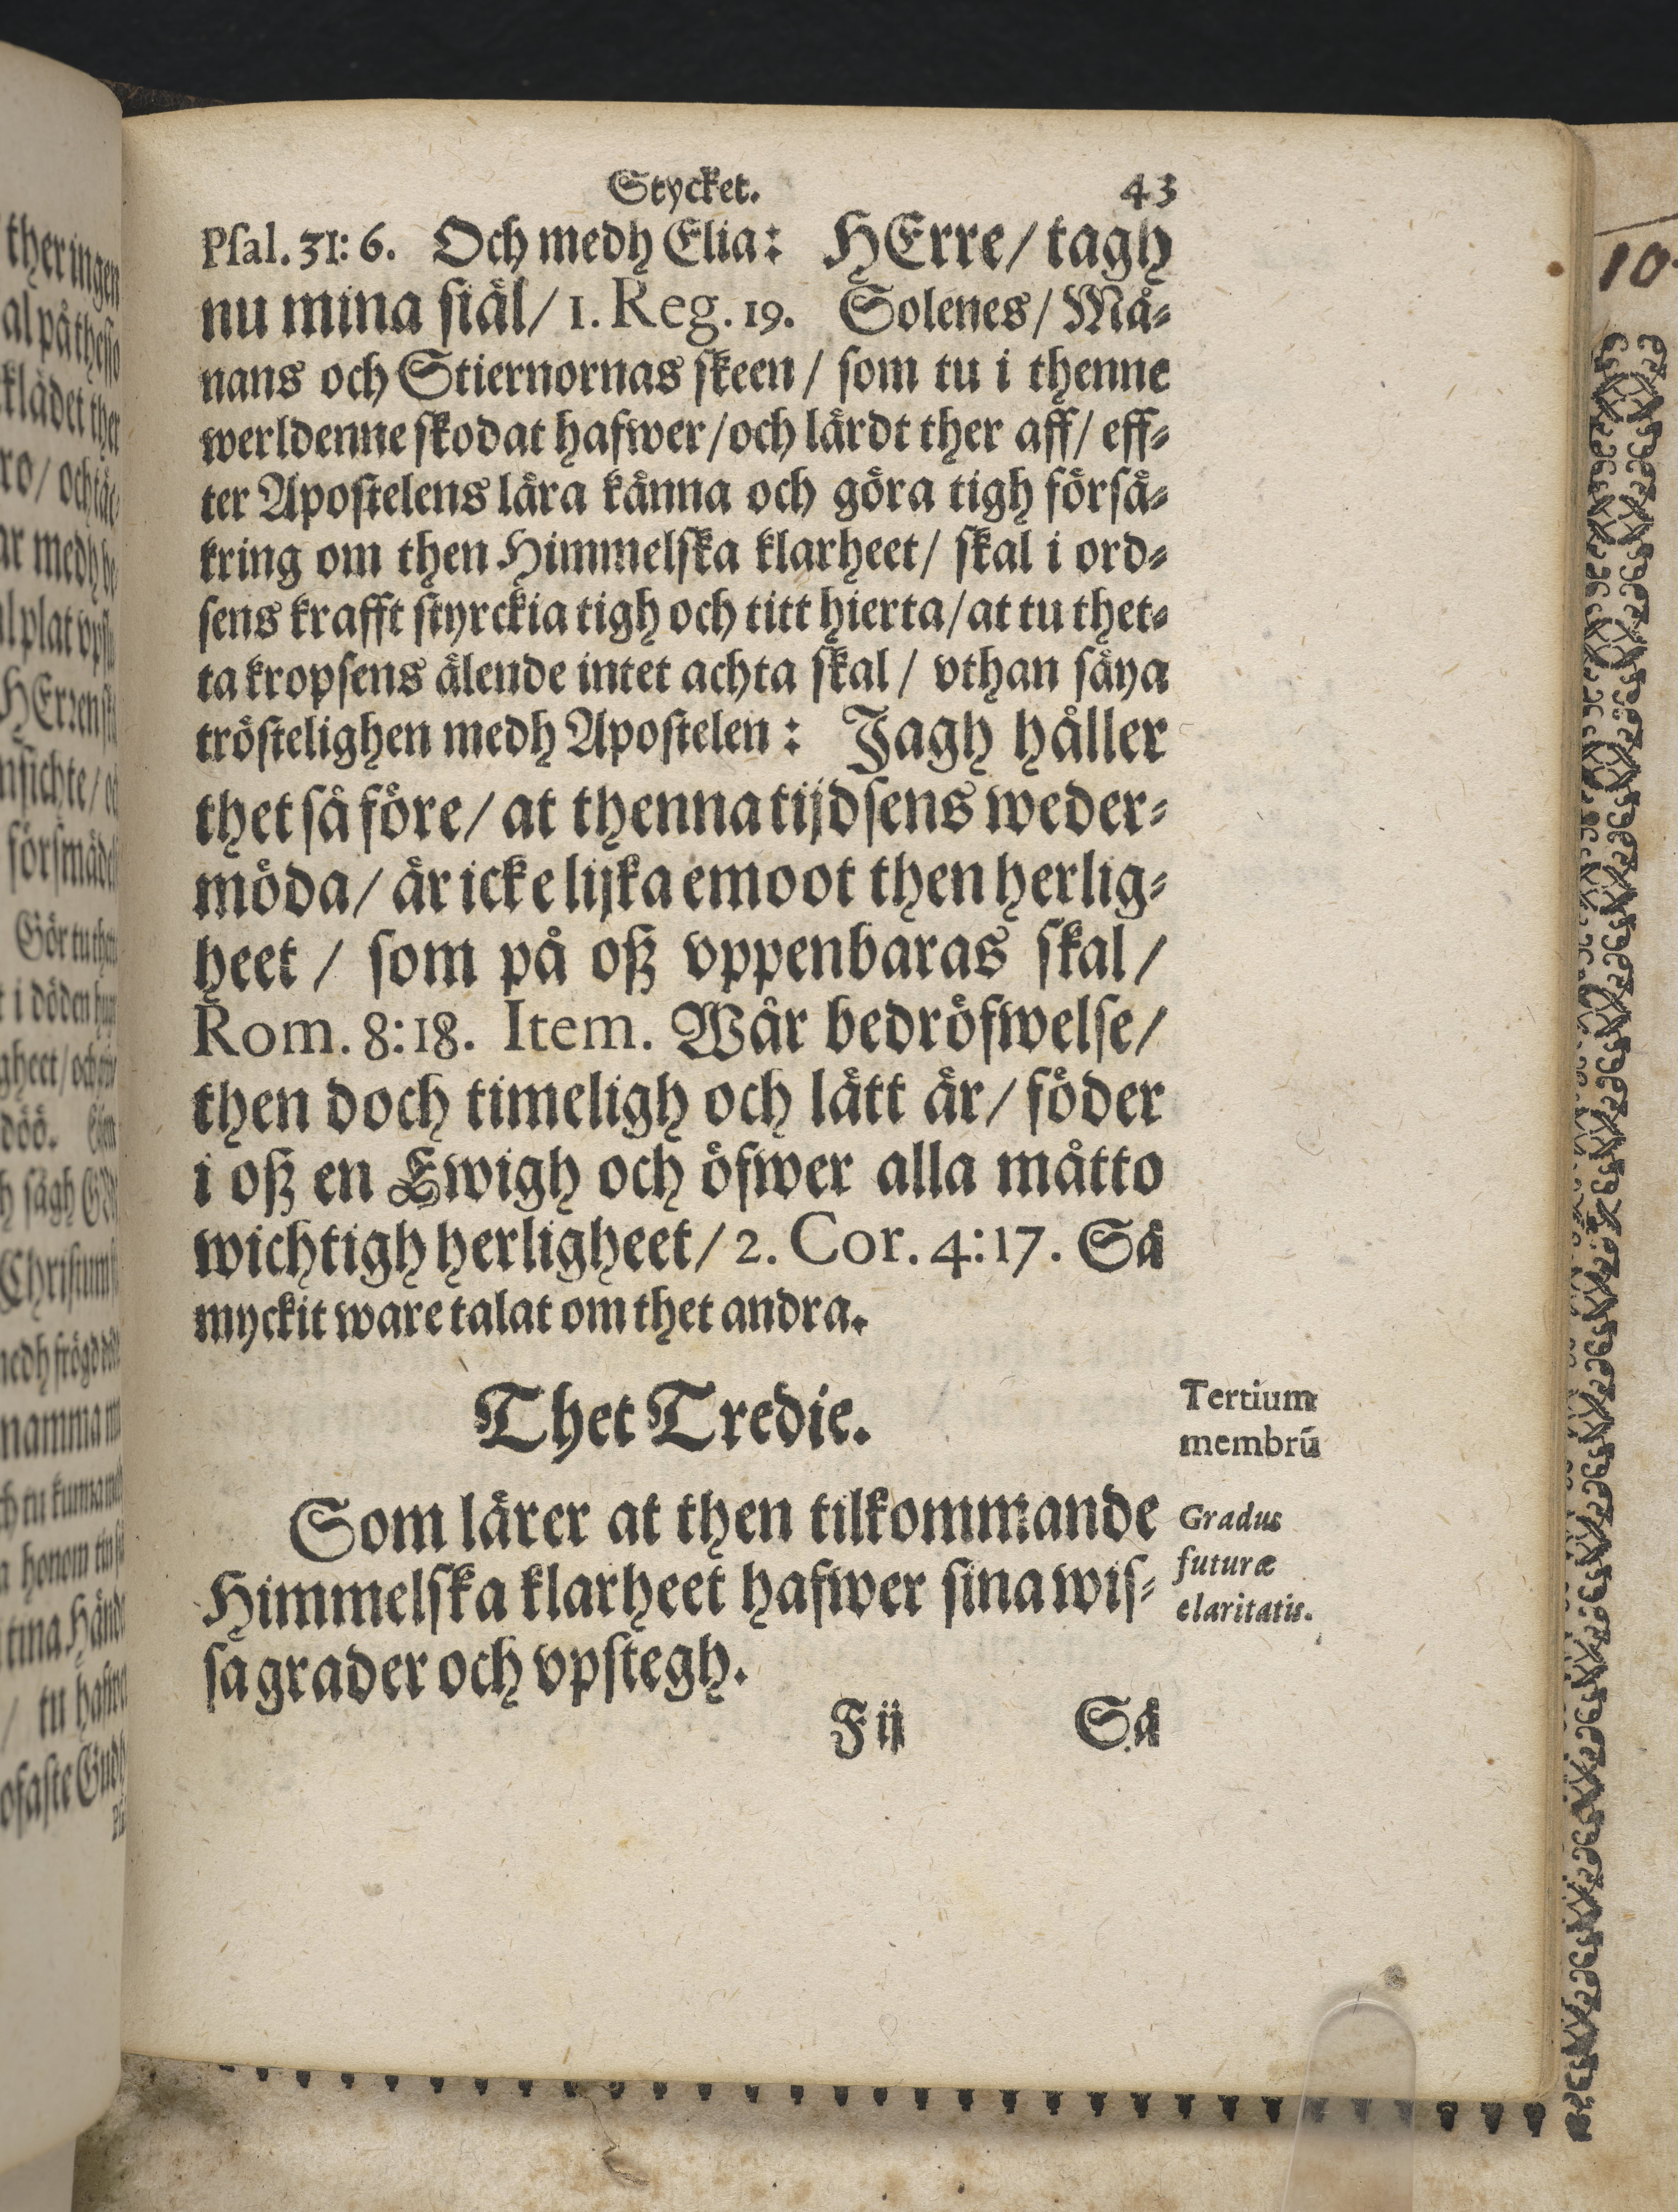 Stycket. 43
Psal. 31: 6. Och medh Elia: HErre/ tagh
nu mina siäl/ 1. Reg. 19. Solenes/ Må-
nans och Stiernornas skeen/ som tu i thenne
werldenne skodat hafwer/och lärdt ther aff/ eff-
ter Apostelens lära känna och göra tigh försä-
kring om then Himmelska klarheet/ skal i ord-
sens krafft styrckia tigh och titt hierta/at tu thet-
ta kropsens älende intet achta skal/ vthan säya
tröstelighen medh Apostelen: Jagh håller
thet så före/ at thenna tijdsens weder-
möda/ är icke lijka emoot then herlig-
heet/ som på oß vppenbaras skal/
Rom. 8:18. Item. Wår bedröfwelse/
then doch timeligh och lätt är/ föder
i oß en Ewigh och öfwer alla måtto
wichtigh herligheet/ 2. Cor. 4:17. Så
myckit ware talat om thet andra.
Thet Tredie.
Tertium
membrū
Som lärer at then tilkommande
Himmelska klarheet hafwer sina wis-
sa grader och vpstegh.
Gradus
futuræ
claritatis.
F ij Så
ther ingen
al på thesso
klädet ther
medh
HErren
Gör tu
i döden
döö.
sågh
namma
honom
tina Händ
tu
10.